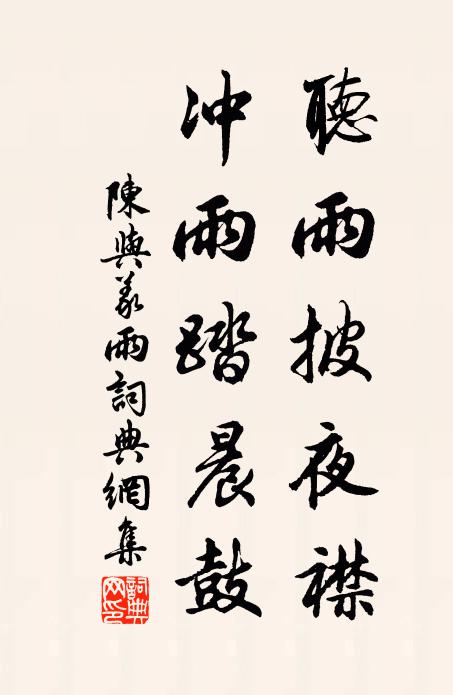 聽雨披夜襟
冲雨踏晨鼓
陳與義雨詞典網集
詞典网印